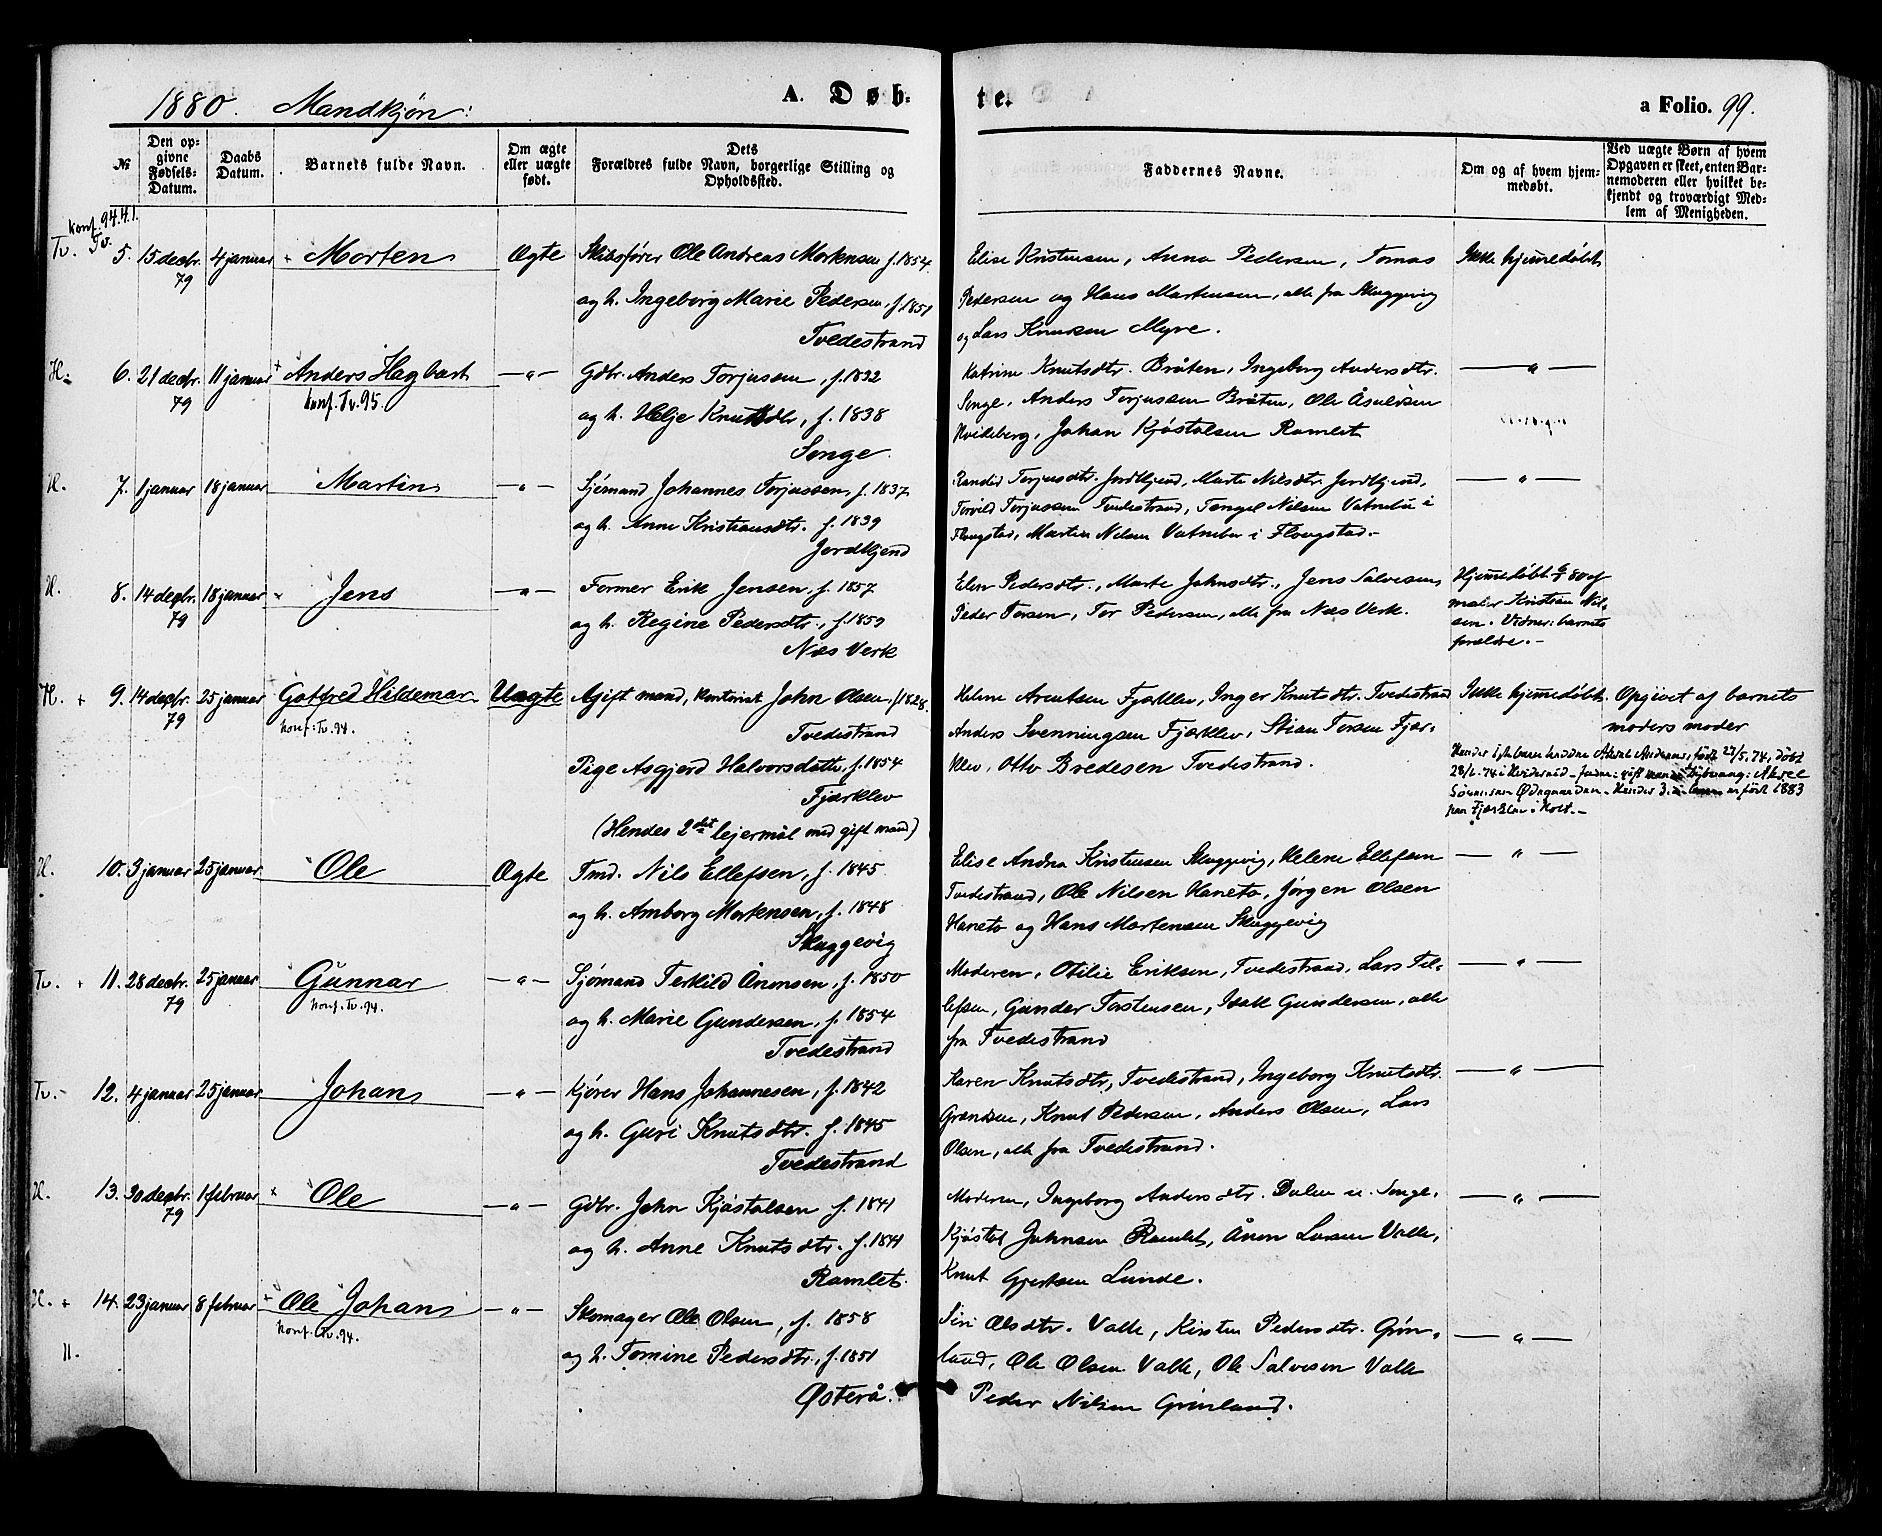 1880. Mandkjøn:
A. Døb-
te.
a Folio. 99.
№
Den opgivne Fødsels-Datum.
Daabs Datum.
Barnets fulde Navn.
Om ægte eller uægte født.
Dets Forældres fulde Navn, borgerlige Stilling og Opholdssted.
Faddernes Navne.
Om og af hvem hjemmedøbt.
Ved uægte Børn af hvem Opgaven er skeet, enten Barnemoderen eller hvilket bekjendt og troværdigt Medlem af Menigheden.
konf. 94.
Tv. Tv. 5. 15 decbr. 79 4 januar Morten Ægte Skibsfører Ole Andreas Mortensen f. 1854
og h. Ingeborg Marie Pedersen, f. 1851
Tvedestrand
Elise Kristensen, Anna Pedersen, Tomas
Pedersen og Hans Martensen, alle fra Skuggevig
og Lars Knutsen Myre.
Ikke hjemmedøbt
H. 6. 21 decbr. 79 11 januar Anders Hagbart —"— Gdbr. Anders Torjussen, f. 1832
konf. Tv. 95.
og h. Helje Knutsdtr., f. 1838
Songe.
Katrine Knutsdtr. Bråten, Ingeborg Andersdtr.
Songe, Anders Torjussen Bråten, Ole
Hvideberg, Johan Kjøstolsen Ramlet
—"—
H. 7. 1 januar 18 januar Martin —"— Sjømand Johannes Torjussen, f. 1837
og h. Anne Kristiansdtr. f. 1839
Jordkjend
Torjusdtr. Jordkjend, Marte Nilsdtr. Jordkjend,
Torjussen Tvedestrand, Tengel Nilsen Vatnebu i
Flougstad, Martin Nilsen Vatnebu i Flougstad.-
—"—
H. 8. 14 decbr. 79 18 januar Jens —"— Former Erik Jensen, f. 1857
og h. Regine Pedersdtr., f. 1859
Næs Verk
Elen Pedersdtr., Marte Johnsdtr., Jens Salvesen,
Peder Torsen, Tor Pedersen, alle fra Næs Verk.
Hjemmedøbt 80 af
maler Kristian Nil-
sen. Vidner: barnets
forældre.-
H. + 9. 14 decbr. 79 25 januar Gotfred Hildemar Uægte Agift mand, kontorist John Olsen, f. 1828.
konf: Tv. 94.
Tvedestrand
Pige Asgjerd Halvorsdatter, f. 1854
Fjærklev
(Hendes 2det lejermål med gift mand)
Helene Arentsen Fjærklev, Inger Knutsdtr. Tvedestrand
Anders Svenningsen Fjærklev, Stian Torsen Fjær-
klev, Otto Bredesen Tvedestrand.
Ikke hjemmedøbt
Opgivet af barnets
moders moder
født 27/5. 74, døbt
1883
H. 10. 3 januar 25 januar Ole Ægte Tmd. Nils Ellefsen, f. 1845
og h. Amborg Mortensen, f. 1848
Skuggevig
Elise Andrea Kristensen Skuggevig, Helene Ellefsen
Tvedestrand, Ole Nilsen Haneto, Jørgen Olsen
Haneto og Hans Mortensen Skuggevig
—"—
Tv. + 11. 28 decbr. 79 25 januar Gunnar —"— Sjømand Terkild Ånonsen, f. 1850
konf. Tv. 94.
og h. Marie Gundersen, f. 1854
Tvedestrand
Moderen, Otilie Eriksen, Tvedestrand, Lars Tel-
lefsen, Gunder Torstensen, Isak Gundersen, alle
fra Tvedestrand
—"—
Tv. 12. 4 januar 25 januar Johan —"— Kjører Hans Johannesen, f. 1842
og h. Guri Knutsdtr. f. 1845
Tvedestrand
Karen Knutsdtr, Tvedestrand, Ingeborg Knutsdtr.
Grændsen, Knut Pedersen, Anders Olsen, Lars
Olsen, alle fra Tvedestrand.
—"—
H. 13. 30 decbr. 79 1 februar Ole —"— Gdbr. John Kjøstolsen f. 1841
og h. Anne Knutsdtr. f. 1841
Ramlet.
Moderen, Ingeborg Andersdtr. Dalen u. Songe,
Kjøstol Johnsen Ramlet, Ånon Larsen Valle,
Knut Gjertsen Lunde.
—"—
H. + 14. 23 januar 8 februar Ole Johan —"— Skomager Ole Olsen, f. 1858
konf. Tv. 94.
11.
og h. Tomine Pedersdtr., f. 1851
Østerå.
Siri Olsdtr. Valle, Kirsten Pedersdtr. Grøn-
land, Ole Olsen Valle, Ole Salvesen Valle
Peder Nilsen Grønland.
—"—